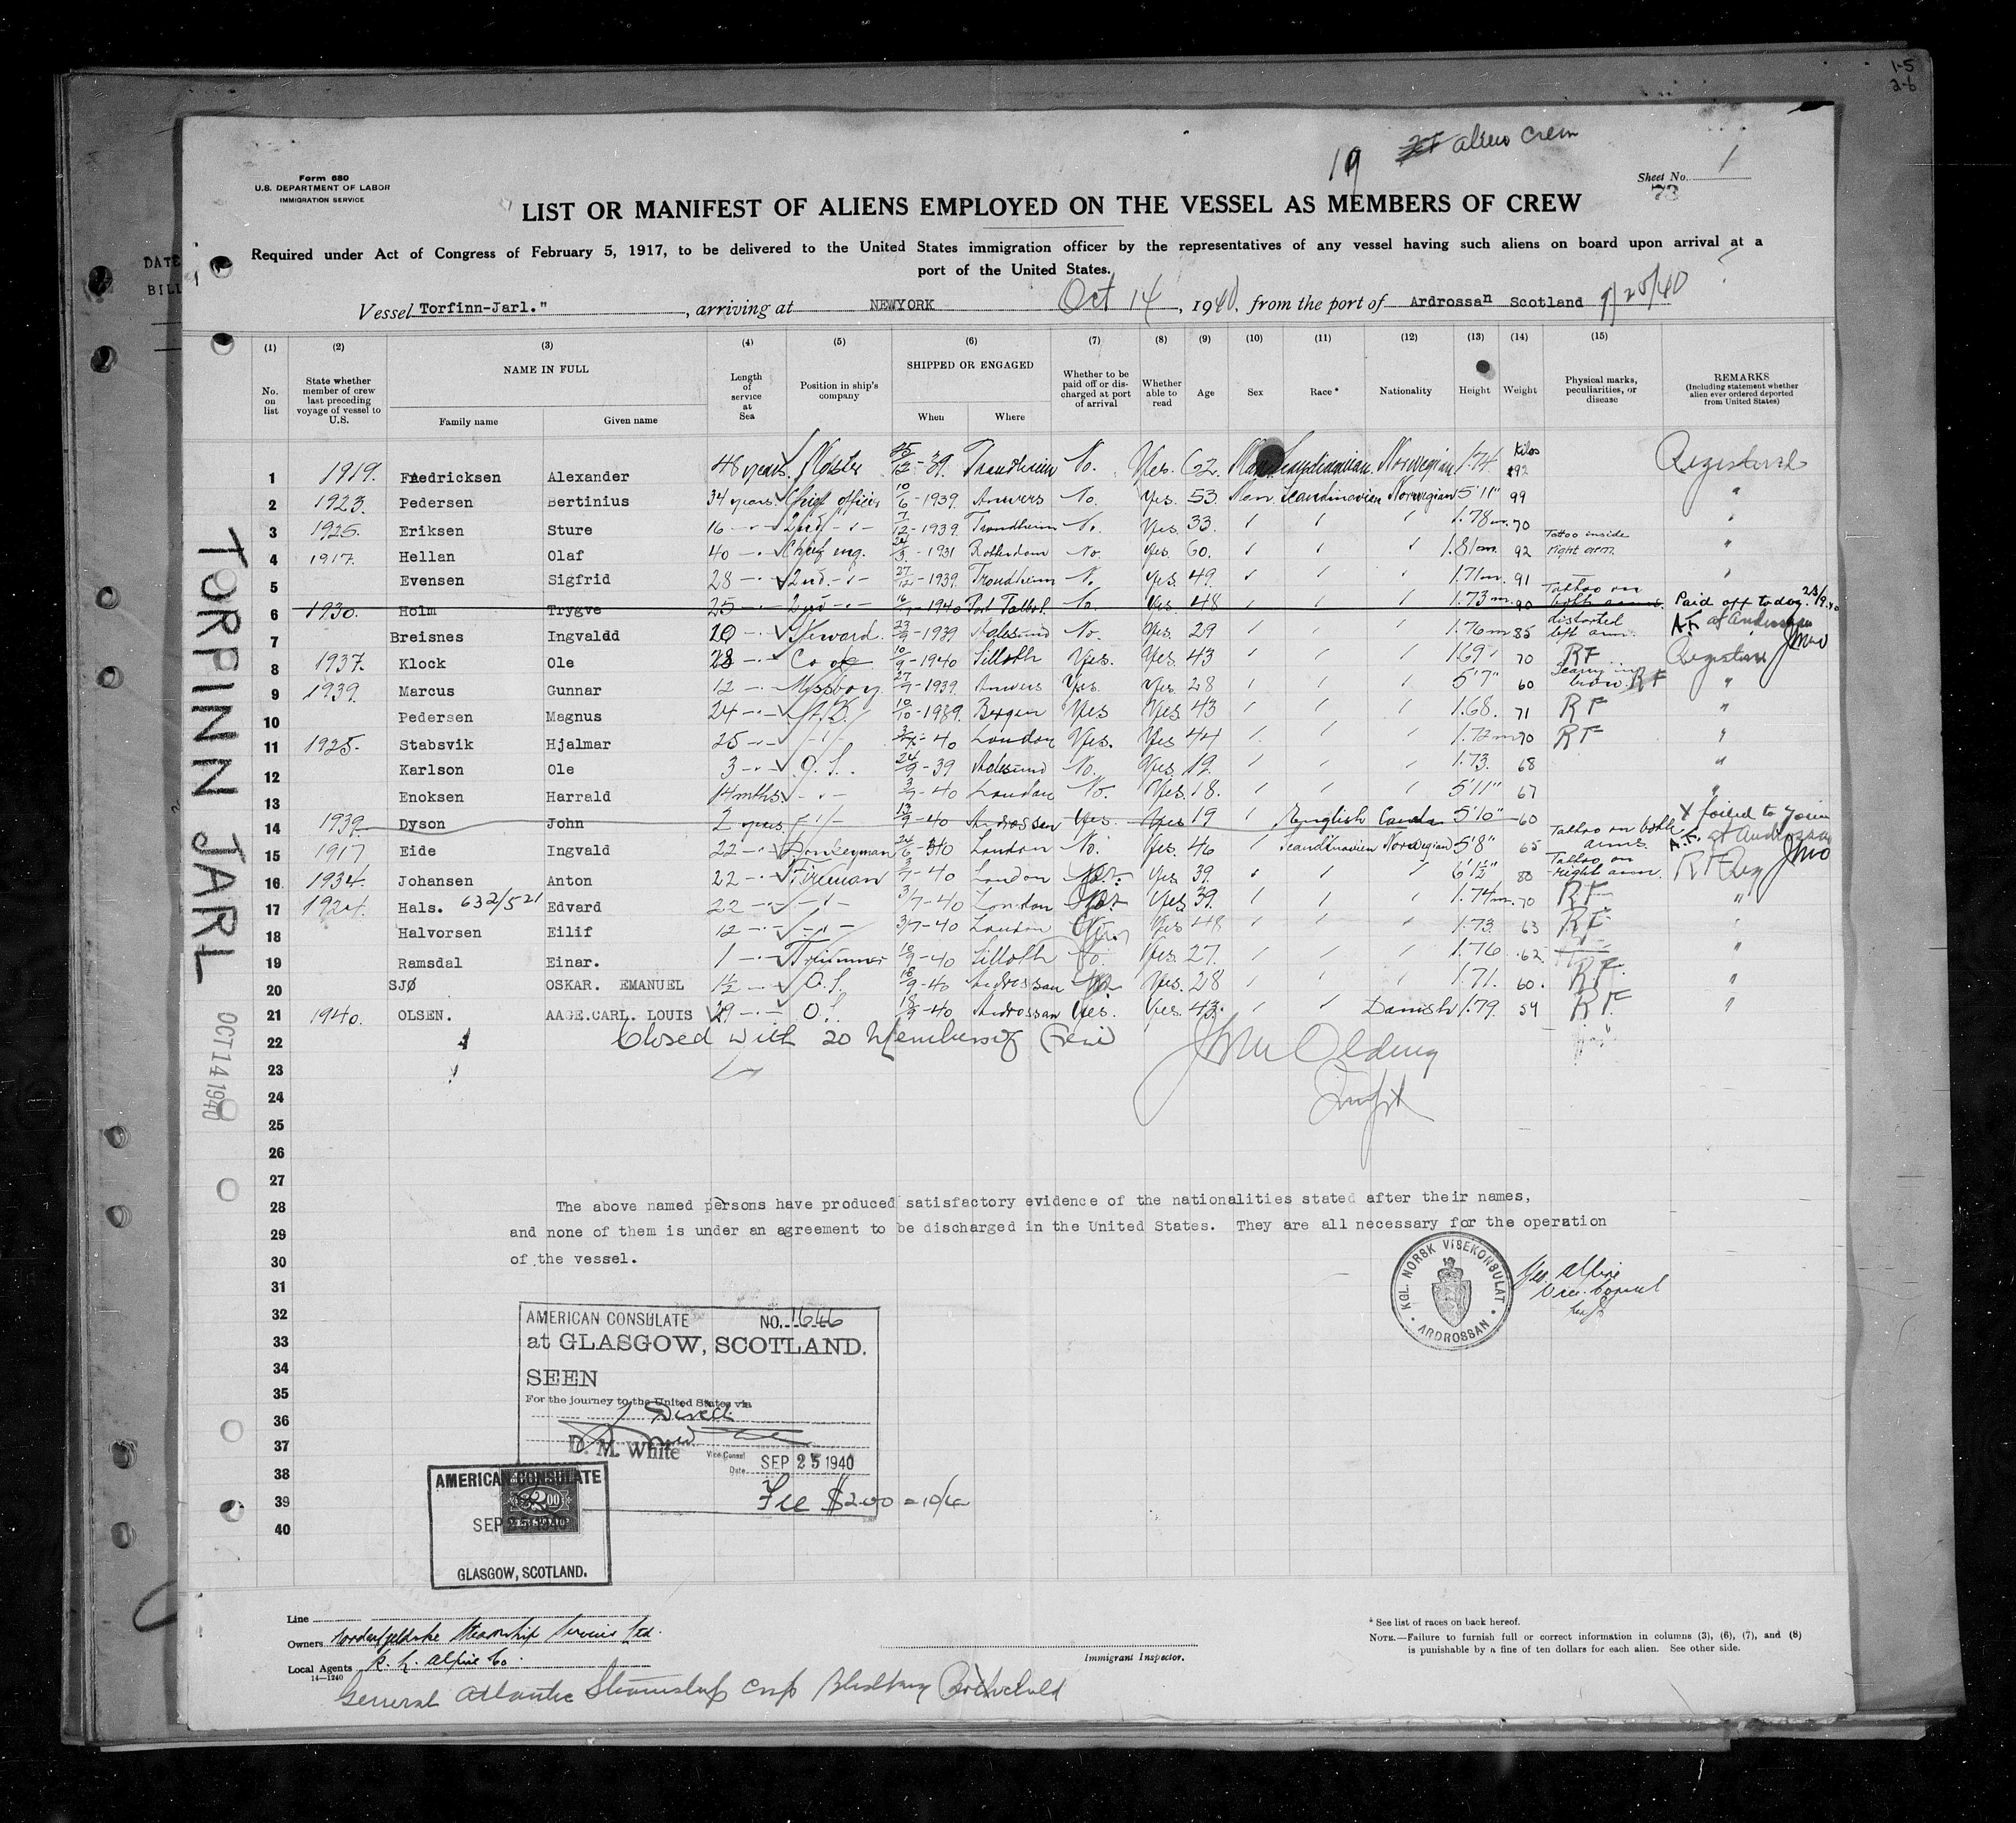 1-5
2-6
19 alien crew
Form 680
U.S. DEPARTMENT OF LABOR
IMMIGRATION SERVICE
Sheet No. 1
73
LIST OR MANIFEST OF ALIENS EMPLOYED ON THE VESSEL AS MEMBERS OF CREW
Required under Act of Congress of February 5, 1917, to be delivered to the United States immigration officer by the representatives of any vessel having such aliens on board upon arrival at a
port of the United States.
DATE
BILL
Vessel Torfinn-Jarl." , arriving at NEWYORK Oct 14, 1940, from the port of Ardrossan Scotland 9/25/40
(1) (2) (3) (4) (5) (6) (7) (8) (9) (10) (11) (12) (13) (14) (15)
No. on list
State whether member of crew last preceding voyage of vessel to U.S.
NAME IN FULL
Family name Given name
Length of service at Sea
Position in ship's company
SHIPPED OR ENGAGED
When Where
Whether to be paid off or discharged at port of arrival
Whether able to read
Age Sex Race* Nationality Height Weight
Physical marks, peculiarities, or disease
REMARKS
(Including statement whether alien ever ordered deported from United States)
1 1919. Fredricksen Alexander 46 years Master 25/12-39. Trondheim No. Yes. 62. Man Scandinavian. Norwegian 1.74. Kilos 92 Registered
2 1923. Pedersen Bertinius 34 years Chief officer 10/6-1939. Anvers No. Yes. 53. Man Scandinavian Norwegian 5'11" 99 "
3 1925. Eriksen Sture 16 -"- 2nd -"- 7/12-1939. Trondheim No. Yes. 33. 1.78m. 70 "
4 1917. Hellan Olaf 40 -"- Chief eng. 24/3-1931 Rotterdam No. Yes. 60. 1.81m. 92 Tattoo inside right arm "
5 Evensen Sigfrid 28 -"- 2nd -"- 27/12-1939. Trondheim No. Yes. 49. 1.71m. 91 "
6 1930. Holm Trygve 25 -"- 2nd -"- 16/7-1940 Port Talbot. No. Yes. 48 1.73m. 90 Tattoo on both arms. Paid off today. 23/9.40
7 Breisnes Ingvaldd 10 -"- Steward. 23/9-1939 Aalesund No. Yes. 29 1.76m 85 distorted left arm A.F. at Ardrossan
8 1937. Klock Ole 28 -"- Cook 10/9-1940 Silloth Yes. Yes. 43 1.69 70 RF Registered
9 1939. Marcus Gunnar 12 -"- Messboy. 27/7-1939. Anvers Yes. Yes. 28 5'7" 60 RF "
10 Pedersen Magnus 24 -"- A.B. 10/10-1939. Bergen Yes Yes. 43 1.68. 71 RF "
11 1925. Stabsvik Hjalmar 25 -"- -"- London Yes. Yes 44 1.72m 70 RF "
12 Karlson Ole 3 -"- O.S. 24/9-39 Aalesund No. Yes. 19. 1.73. 68 "
13 Enoksen Harrald 14 mths. -"- 3/7-40 London No. Yes. 18. 5'11" 67 "
14 1939. Dyson John 2 years -"- 13/9-40 Ardrossan Yes. Yes 19 English Canda 5'10" 60 X failed to join
15 1917 Eide Ingvald 22 -"- Donkeyman 26/6-40 London No. Yes. 46 Scandinavian Norwegian 5'8" 65 Tattoo on both arms A.F. at Ardrossan
16 1934. Johansen Anton 22 -"- Fireman 3/7-40 London Yes. Yes 39. 6'1½" 80 Tattoo on right arm. RF Reg
17 1924. Hals. 632/521 Edvard 22 -"- -"- 3/7-40 London Yes 39. 1.74m. 70 RF "
18 Halvorsen Eilif 12 -"- -"- 3/7-40 London Yes 48 1.73. 63 RF
19 Ramsdal Einar. 1 -"- Trimmer 10/9-40 Silloth No. Yes. 27. 1.76 62. "
20 SJØ OSKAR. EMANUEL 1½ -"- O.S. 18/9-40 Ardrossan Yes. 28 1.71. 60. RF. "
21 1940. OLSEN. AAGE.CARL. LOUIS 29 -"- O. 18/9-40 Ardrossan Yes. Yes. 43. Danish 1.79. 59 RF. "
22 Closed with 20 Members of Crew
23
24
25
26
27
28 The above named persons have produced satisfactory evidence of the nationalities stated after their names,
29 and none of them is under an agreement to be discharged in the United States. They are all necessary for the operation
30 of the vessel.
31
32
33
34
35
36
37
38
39
40
TORFINN JARL
OCT 14 1940
KGL. NORSK VISEKONSULAT
ARDROSSAN
Alpine
Vice Consul
AMERICAN CONSULATE NO. 1646
at GLASGOW, SCOTLAND.
SEEN
For the journey to the United States via
Direct
D. M. White Vice Consul
Date SEP 25 1940
Fee $2.00 = 10/-
AMERICAN CONSULATE
$2.00
SEP 25 1940
GLASGOW, SCOTLAND.
Line
Owners Nordenfjeldske Steamship Service Ltd.
Local Agents R. L. Alpine Co.
14—1240
General Atlantic Steamship Corp
Immigrant Inspector.
* See list of races on back hereof.
NOTE.—Failure to furnish full or correct information in columns (3), (6), (7), and (8)
is punishable by a fine of ten dollars for each alien. See other side.